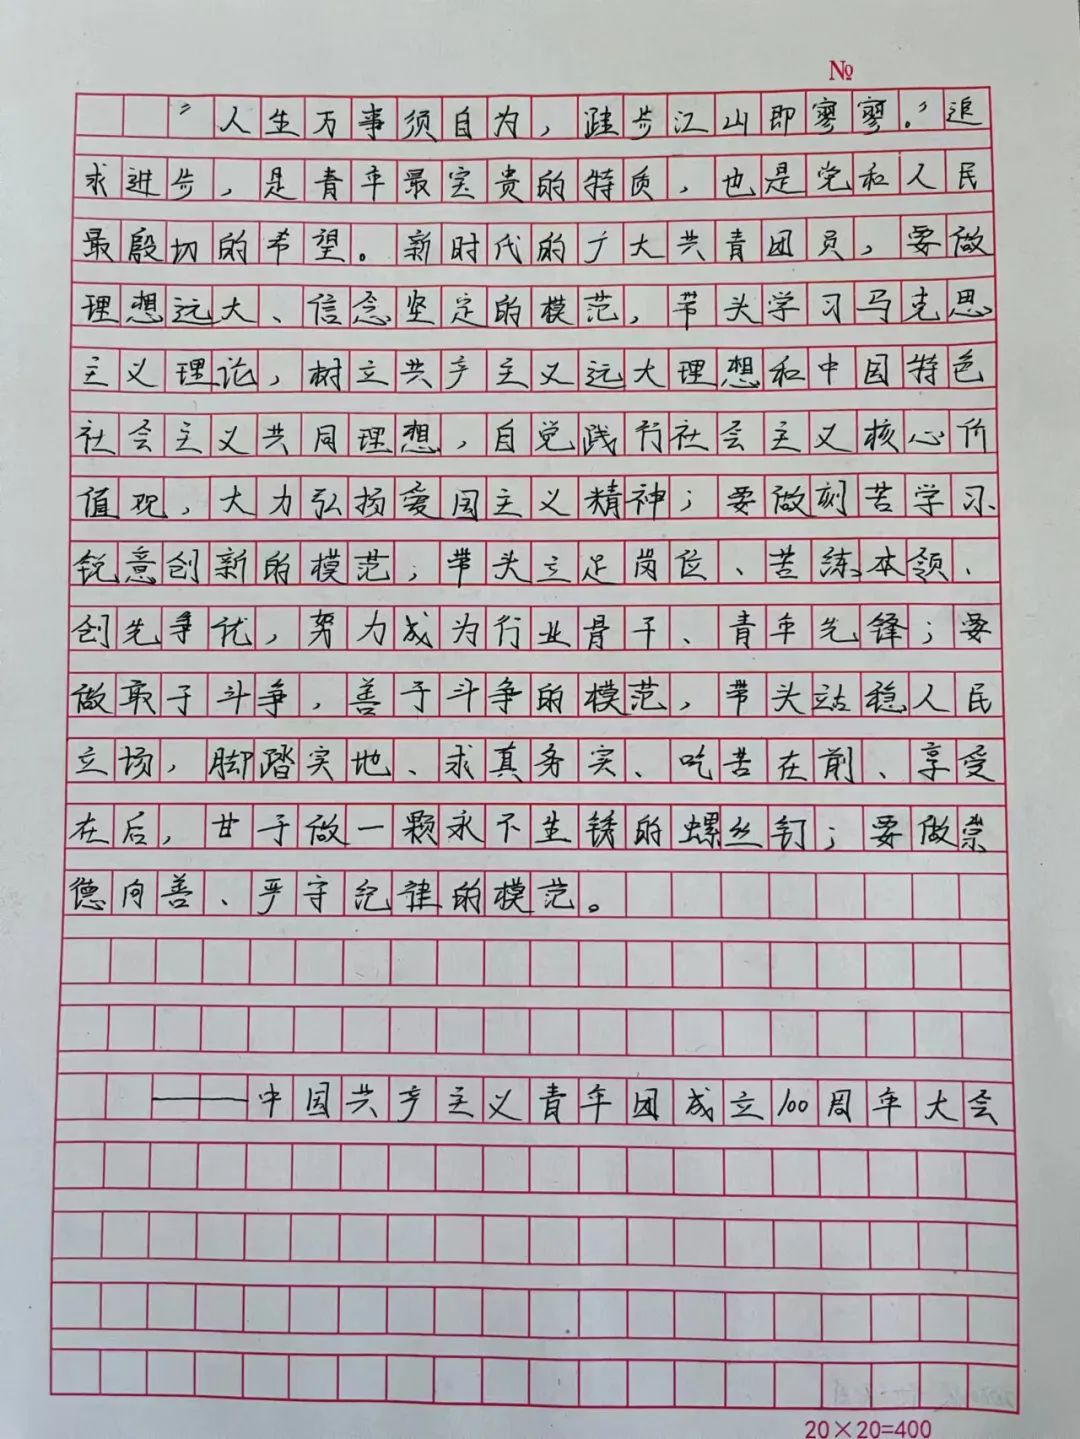 №
"人生万事须自为，跬步江山即寥寥。"追
求进步，是青年最宝贵的特质，也是党和人民
最殷切的希望。新时代的广大共青团员，要做
理想远大、信念坚定的模范，带头学习马克思
主义理论，树立共产主义远大理想和中国特色
社会主义共同理想，自觉践行社会主义核心价
值观，大力弘扬爱国主义精神；要做刻苦学习、
锐意创新的模范；带头立足岗位、苦练本领、
创先争优，努力成为行业骨干、青年先锋；要
做敢于斗争，善于斗争的模范，带头站稳人民
立场，脚踏实地、求真务实、吃苦在前、享受
在后，甘于做一颗永不生锈的螺丝钉；要做崇
德向善、严守纪律的模范。
——中国共产主义青年团成立100周年大会
20×20=400